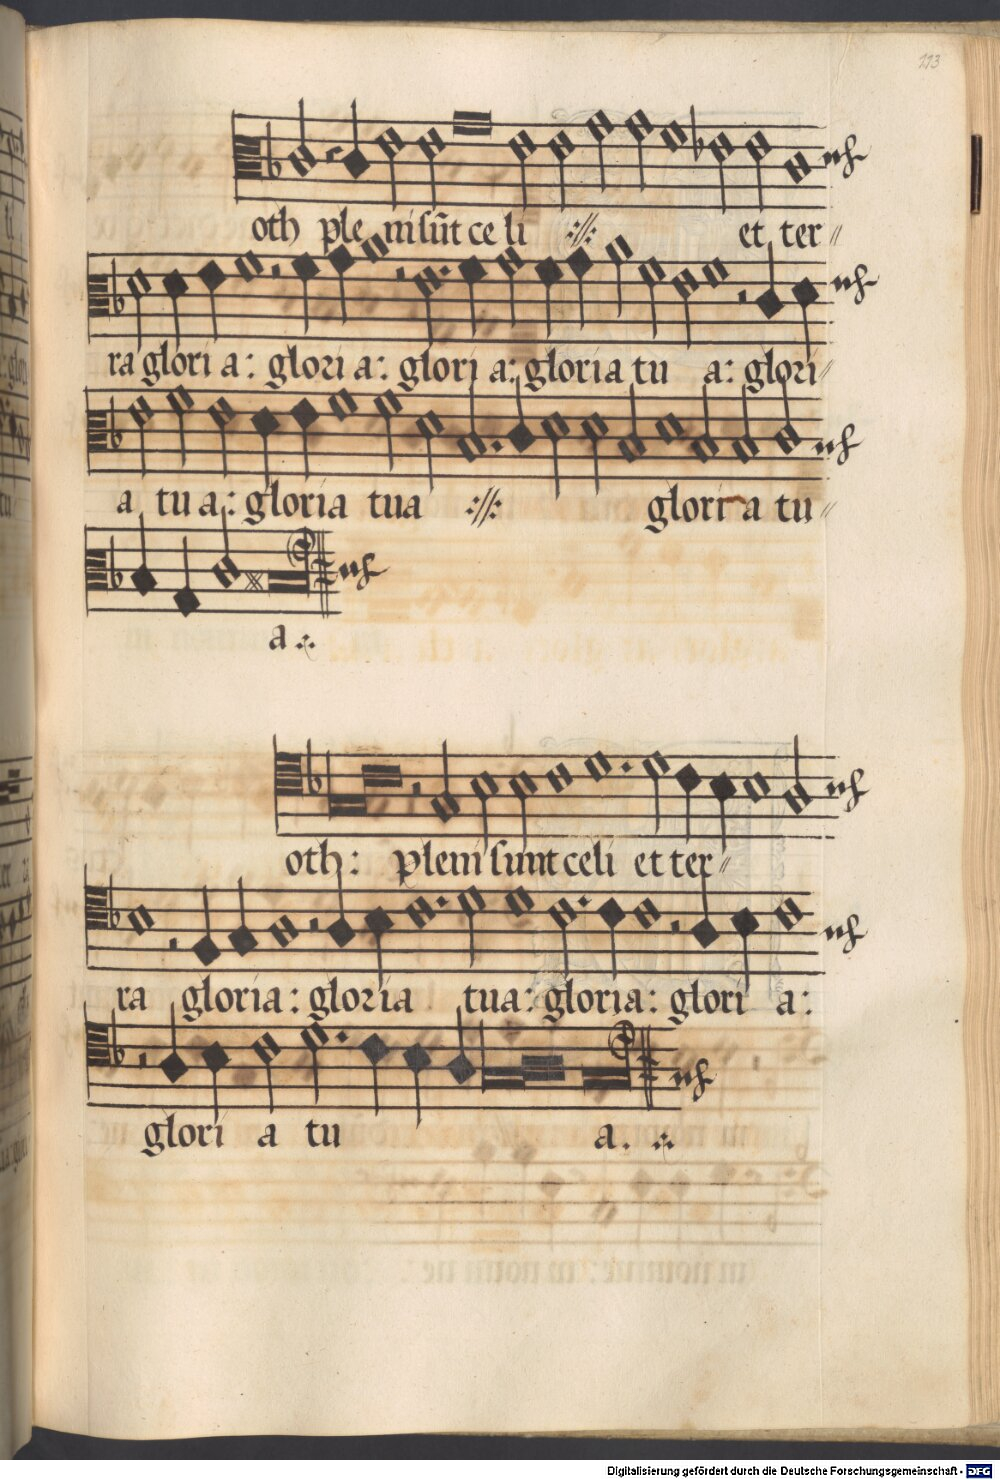 213
oth ple ni sūt ce li :||: et ter
ra glori a: glori a: glori a: gloria tu a: glori
a tu a: gloria tua :||: glori a tu
a
oth: pleni sunt celi et ter
ra gloria: gloria tua: gloria: glori a:
glori a tu a.
Digitalisierung gefördert durch die Deutsche Forschungsgemeinschaft - DFG